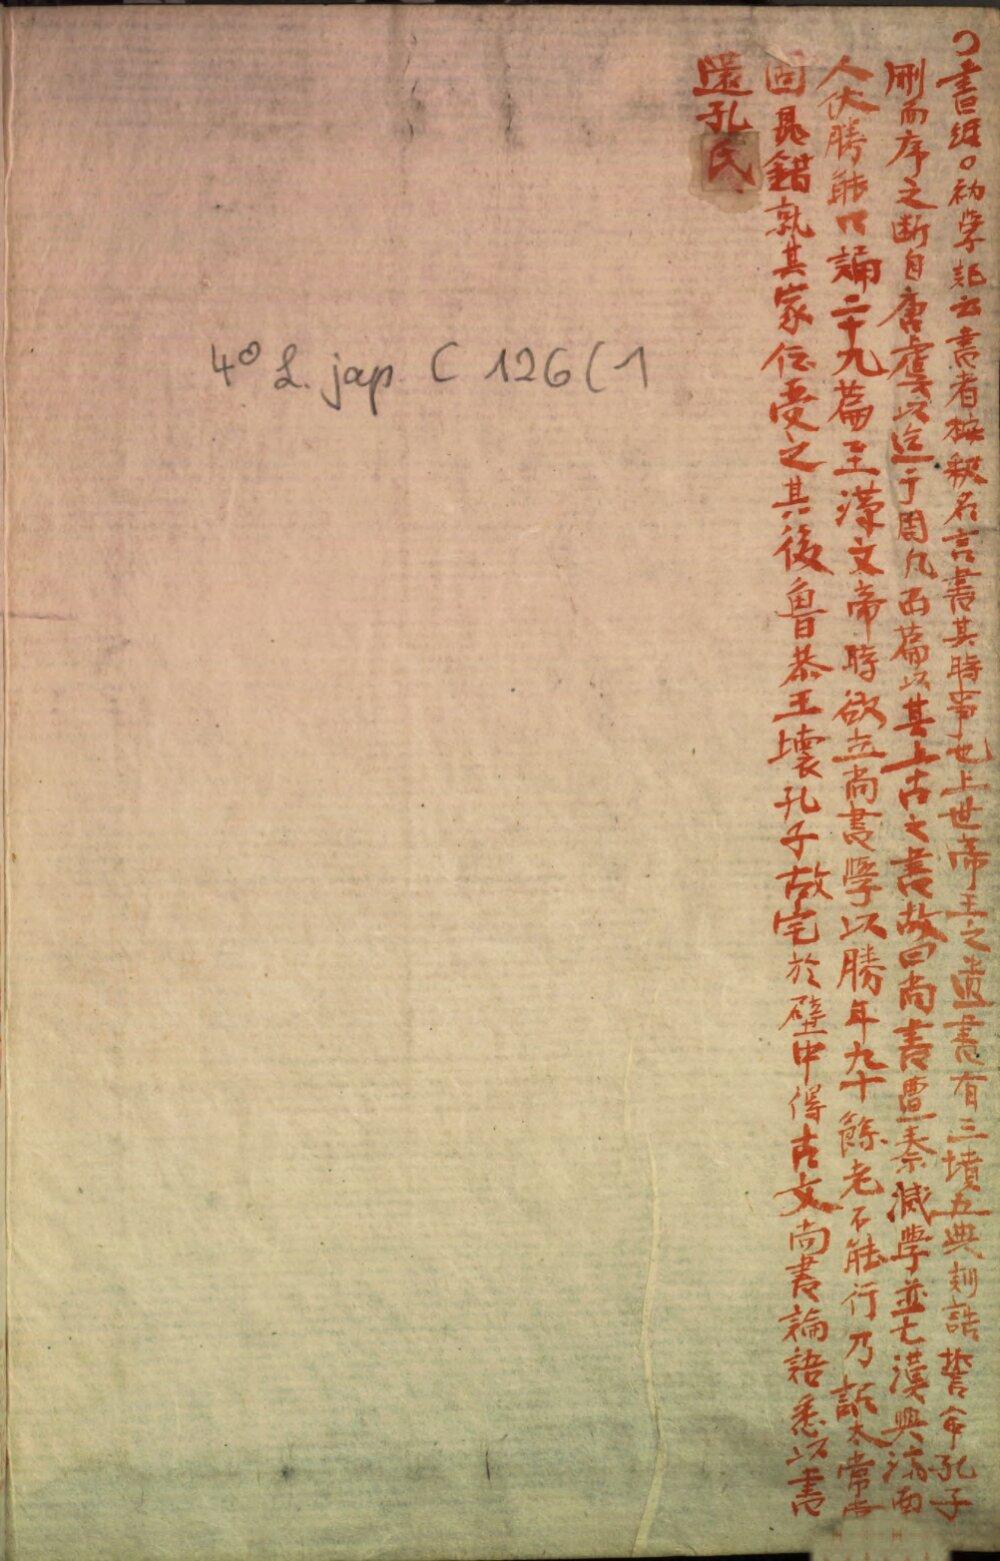 ○書經○初學記云書者按釈名言書其時事也上世帝王之遺書有三墳五典訓誥誓命孔子
刪而序之断自唐虞以迄于周凡百篇以其上古之書故曰尚書遭秦滅學並亡漢興濟南
人伏勝能口誦二十九篇至漢文帝時欲立尚書學以勝年九十餘老不能行乃詔太常掌
固晁錯就其家伝受之其後魯恭王壞孔子故宅於壁中得古文尚書論語悉以書
還孔氏
4° L. jap C 126 (1